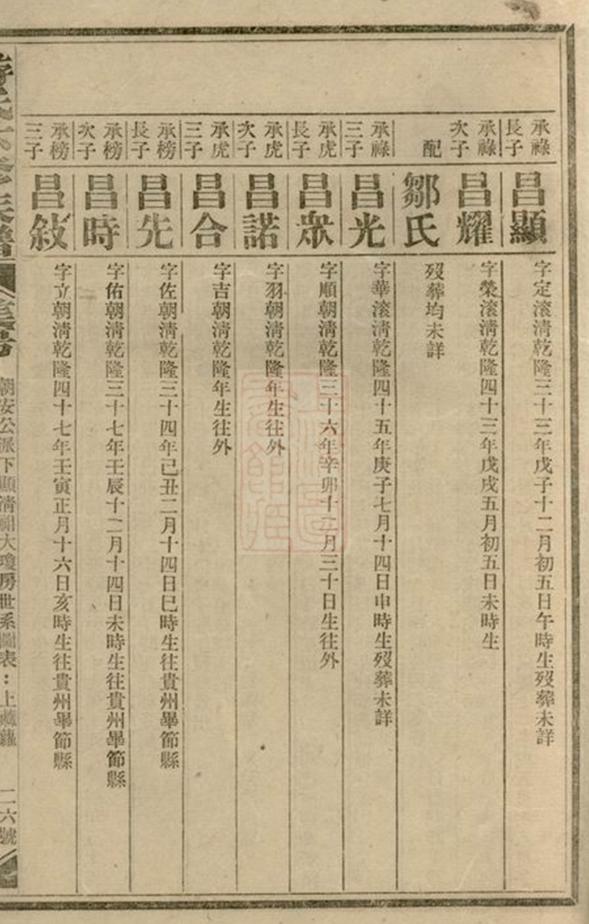 承祿長子 昌顯 字定滚清乾隆三十三年戊子十二月初五日午時生歿葬未詳
承祿次子 昌耀 字榮滚清乾隆四十三年戊戌五月初五日未時生
配 鄒氏 歿葬均未詳
承祿三子 昌光 字華滚清乾隆四十五年庚子七月十四日申時生歿葬未詳
承虎長子 昌衆 字順朝清乾隆三十六年辛卯十二月三十日生往外
承虎次子 昌諾 字羽朝清乾隆年生往外
承虎三子 昌合 字吉朝清乾隆年生往外
承榜長子 昌先 字佐朝清乾隆三十四年己丑二月十四日巳時生往貴州畢節縣
承榜次子 昌時 字佑朝清乾隆三十七年壬辰十二月十四日未時生往貴州畢節縣
承榜三子 昌敍 字立朝清乾隆四十七年壬寅正月十六日亥時生往貴州畢節縣
朝安公派下顯清祠大瓊房世系圖表：上 二六號